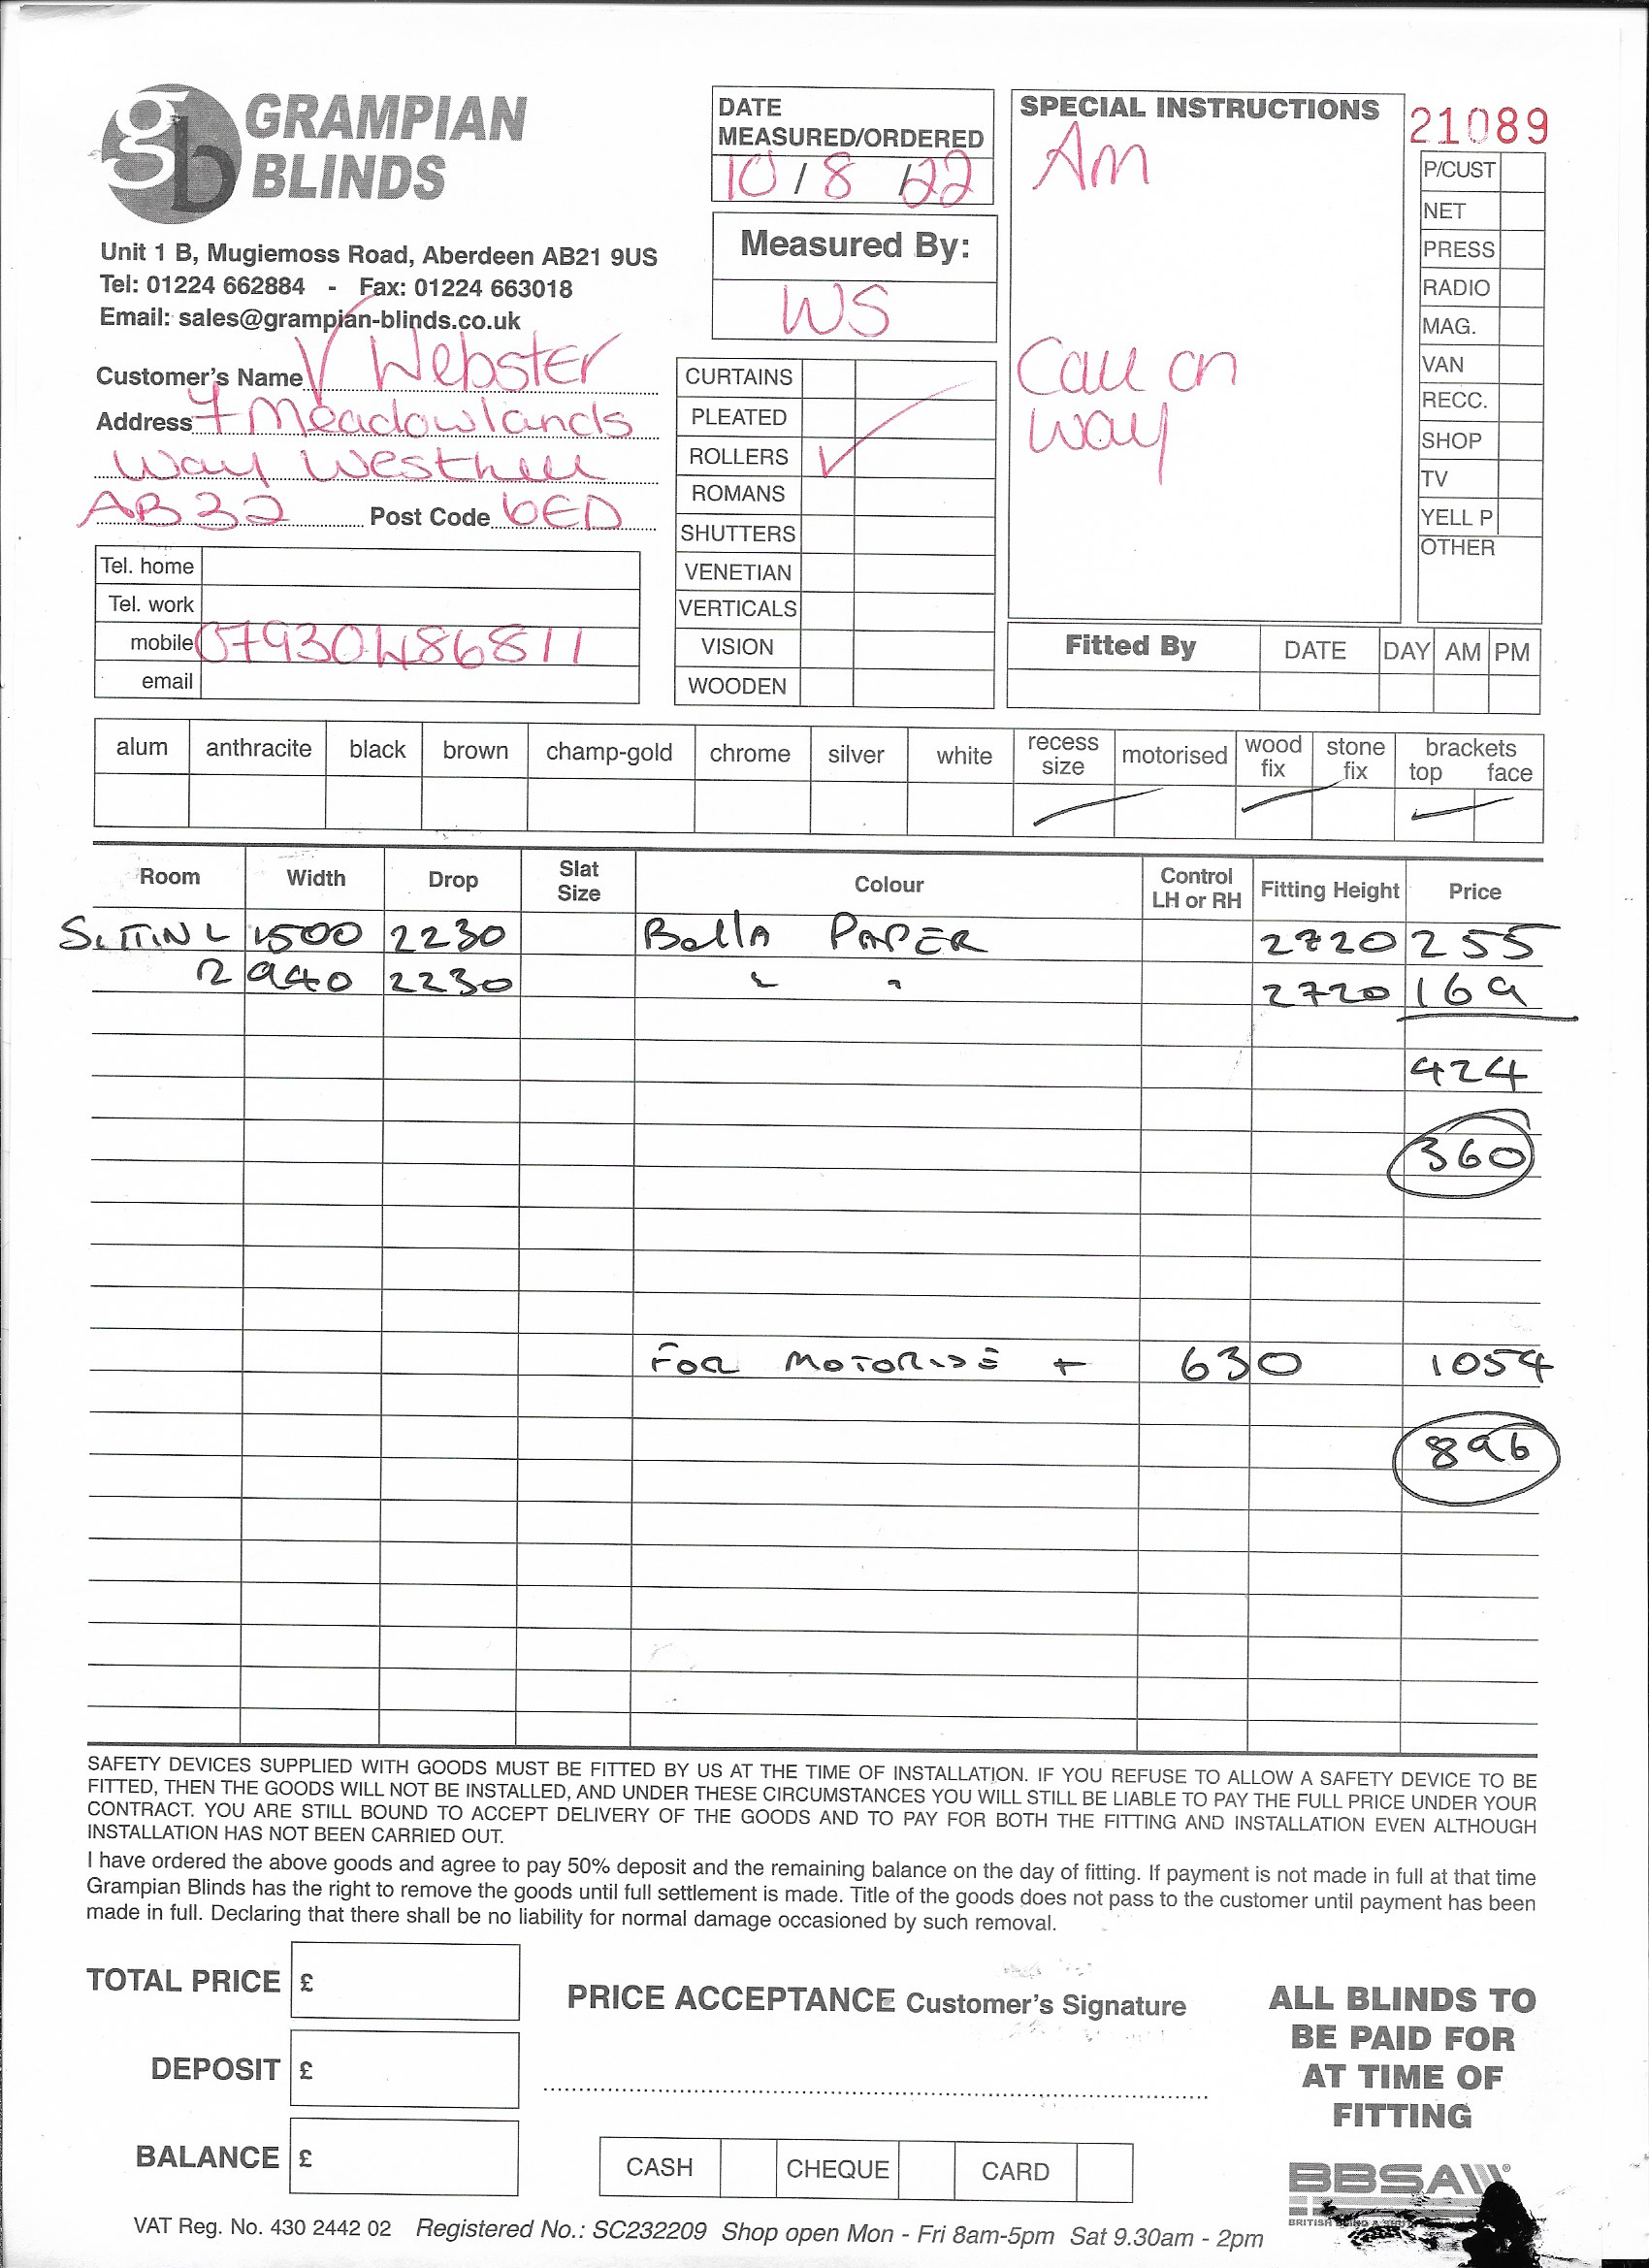 gb GRAMPIAN BLINDS
Unit 1 B, Mugiemoss Road, Aberdeen AB21 9US
Tel: 01224 662884 - Fax: 01224 663018
Email: sales@grampian-blinds.co.uk
Customer's Name Webster
Address 7 Meadowlands
Way Westhill
AB32 Post Code 6ED
Tel. home
Tel. work
mobile 07930486811
email
DATE
MEASURED/ORDERED
10/8/22
Measured By:
WS
CURTAINS
PLEATED
ROLLERS ✓
ROMANS
SHUTTERS
VENETIAN
VERTICALS
VISION
WOODEN
SPECIAL INSTRUCTIONS
Am
Call on
way
21089
P/CUST
NET
PRESS
RADIO
MAG.
VAN
RECC.
SHOP
TV
YELL P
OTHER
Fitted By DATE DAY AM PM
alum anthracite black brown champ-gold chrome silver white recess size motorised wood fix stone fix brackets top face
Room Width Drop Slat Size Colour Control LH or RH Fitting Height Price
SITTIN L 1500 2230 Bella PAPER 2720 255
R 940 2230 " " 2720 169
424
360
FOR MOTORISE + 630 1054
896
SAFETY DEVICES SUPPLIED WITH GOODS MUST BE FITTED BY US AT THE TIME OF INSTALLATION. IF YOU REFUSE TO ALLOW A SAFETY DEVICE TO BE
FITTED, THEN THE GOODS WILL NOT BE INSTALLED, AND UNDER THESE CIRCUMSTANCES YOU WILL STILL BE LIABLE TO PAY THE FULL PRICE UNDER YOUR
CONTRACT. YOU ARE STILL BOUND TO ACCEPT DELIVERY OF THE GOODS AND TO PAY FOR BOTH THE FITTING AND INSTALLATION EVEN ALTHOUGH
INSTALLATION HAS NOT BEEN CARRIED OUT.
I have ordered the above goods and agree to pay 50% deposit and the remaining balance on the day of fitting. If payment is not made in full at that time
Grampian Blinds has the right to remove the goods until full settlement is made. Title of the goods does not pass to the customer until payment has been
made in full. Declaring that there shall be no liability for normal damage occasioned by such removal.
TOTAL PRICE £
DEPOSIT £
BALANCE £
PRICE ACCEPTANCE Customer's Signature
CASH CHEQUE CARD
ALL BLINDS TO
BE PAID FOR
AT TIME OF
FITTING
BBSA
BRITISH
VAT Reg. No. 430 2442 02 Registered No.: SC232209 Shop open Mon - Fri 8am-5pm Sat 9.30am - 2pm